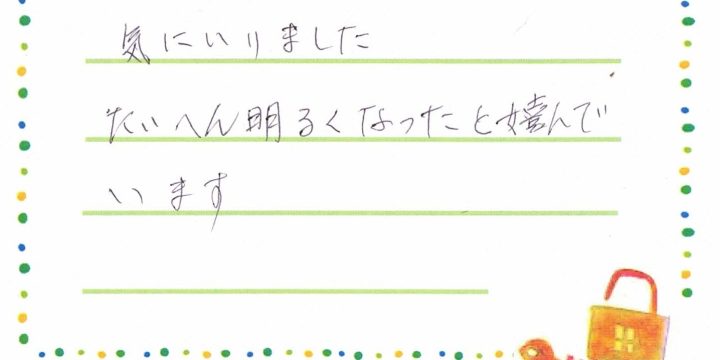 気にいりました
たいへん明るくなったと嬉んで
います